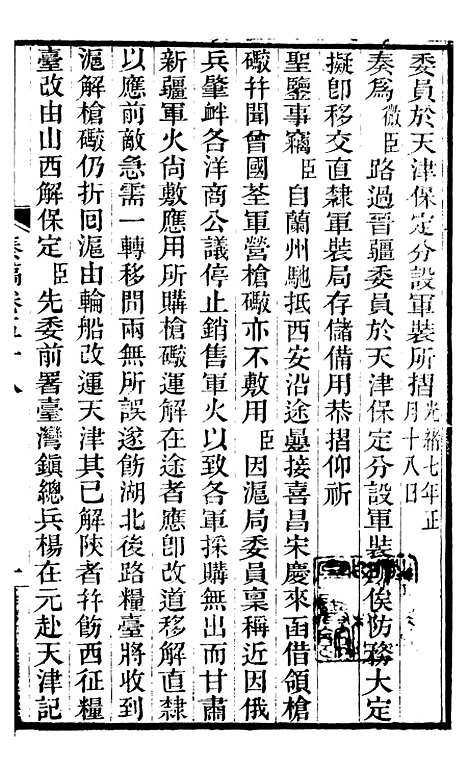 委員於天津保定分設軍裝所摺光緒七年正月十八日
奏爲微臣路過晉疆委員於天津保定分設軍裝所俟防務大定
擬卽移交直隸軍裝局存儲備用恭摺仰祈
聖鑒事竊臣自蘭州馳抵西安沿途疊接喜昌宋慶來函借領槍
礮幷聞曾國荃軍營槍礮亦不敷用臣因滬局委員稟稱近因俄
兵肇衅各洋商公議停止銷售軍火以致各軍採購無出而甘肅
新疆軍火尙敷應用所購槍礮運解在途者應卽改道移解直隸
以應前敵急需一轉移閒兩無所誤遂飭湖北後路糧臺將收到
滬解槍礮仍折回滬由輪船改運天津其已解陝者幷飭西征糧
臺改由山西解保定臣先委前署臺灣鎭總兵楊在元赴天津記
奏稿卷五十八
一